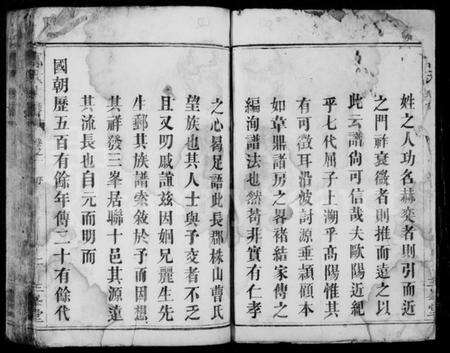 姓之人功名赫奕者則引而近
之門祚衰微者則推而遠之以
此云譜尚可信哉夫歐陽近紀
乎七代屈子上溯乎高陽惟其
有可徵耳沿波討源垂穎顧本
如草鼎諸房之畧褚結家傳之
編洵譜法也然苟非實有仁孝
之心曷足語此長郡株山曹氏
望族也其人士與予交者不乏
且又叨戚誼兹因姻兄麗生先
生郵其族譜索敘於予而因想
其祥發三峯居聯十邑其源遠
其流長也自元而明而
國朝歷五百有餘年傳三十有餘代